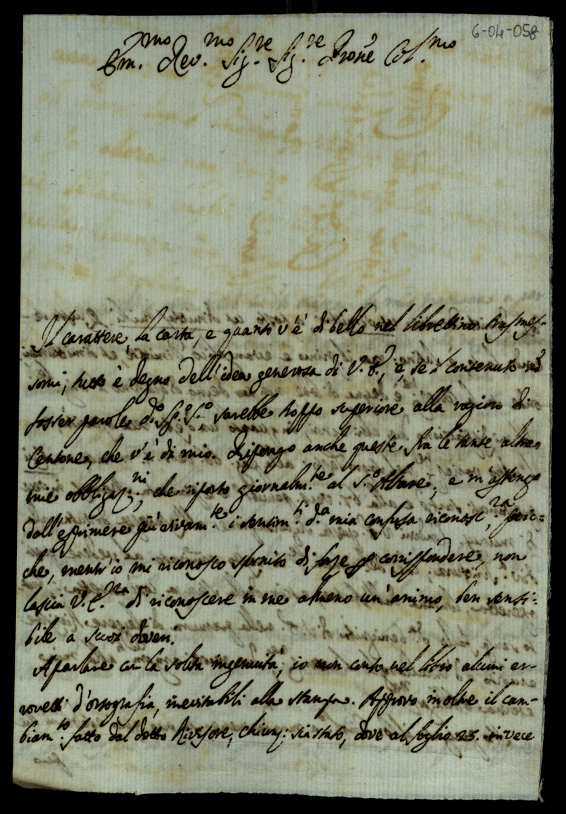 6-04-058
Em.mo Rev.mo Sig.re Sig.re Prone Col.mo
Il carattere, la carta, e quanto v'è di bello nel librettino trasmes-
somi, tutto è degno dell'idea generosa di V. E., e, se 'l contenuto nō
fosser parole d. Sp. S.o, sarebbe troppo superiore alla ragion di
Centone, che v'è di mio. Ripongo anche queste fra le tante altre
mie obbligaz.ni, che riporto giornalm.te al S.o Altare, e m'astengo
dall'esprimere più vivam.te i sentim.ti d.a mia confusa riconosc.za, per-
che, mentr'io mi riconosco sfornito di forze p corrispondere, non
lascia V. E.za di riconoscere in me almeno un'animo, ben sensi-
bile a suoi doveri.
A parlare cō la solita ingenuità, io non conto nel libro alcuni er-
rovetti d'ortografia, inevitabili alla stampa. Approvo inoltre il cam-
biam.to fatto dal dotto Revisore, chiunq; sia stato, dove al foglio 25. invece